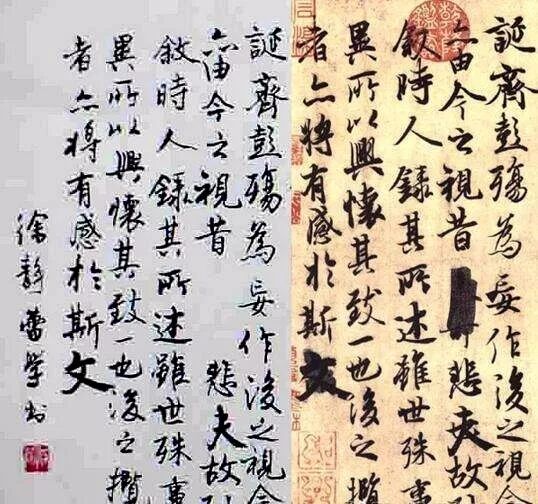 誕齊彭殤為妄作後之視今
亦由今之視昔悲夫故列
敘時人錄其所述雖世殊事
異所以興懷其致一也後之攬
者亦將有感於斯文
誕齊彭殤為妄作後之視今
亦由今之視昔悲夫故列
敘時人錄其所述雖世殊事
異所以興懷其致一也後之攬
者亦將有感於斯文
徐靜蕾學书